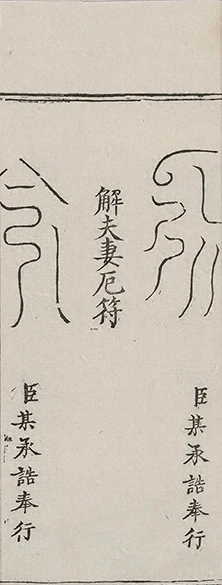 臣某承誥奉行
解夫妻厄符
臣某承誥奉行